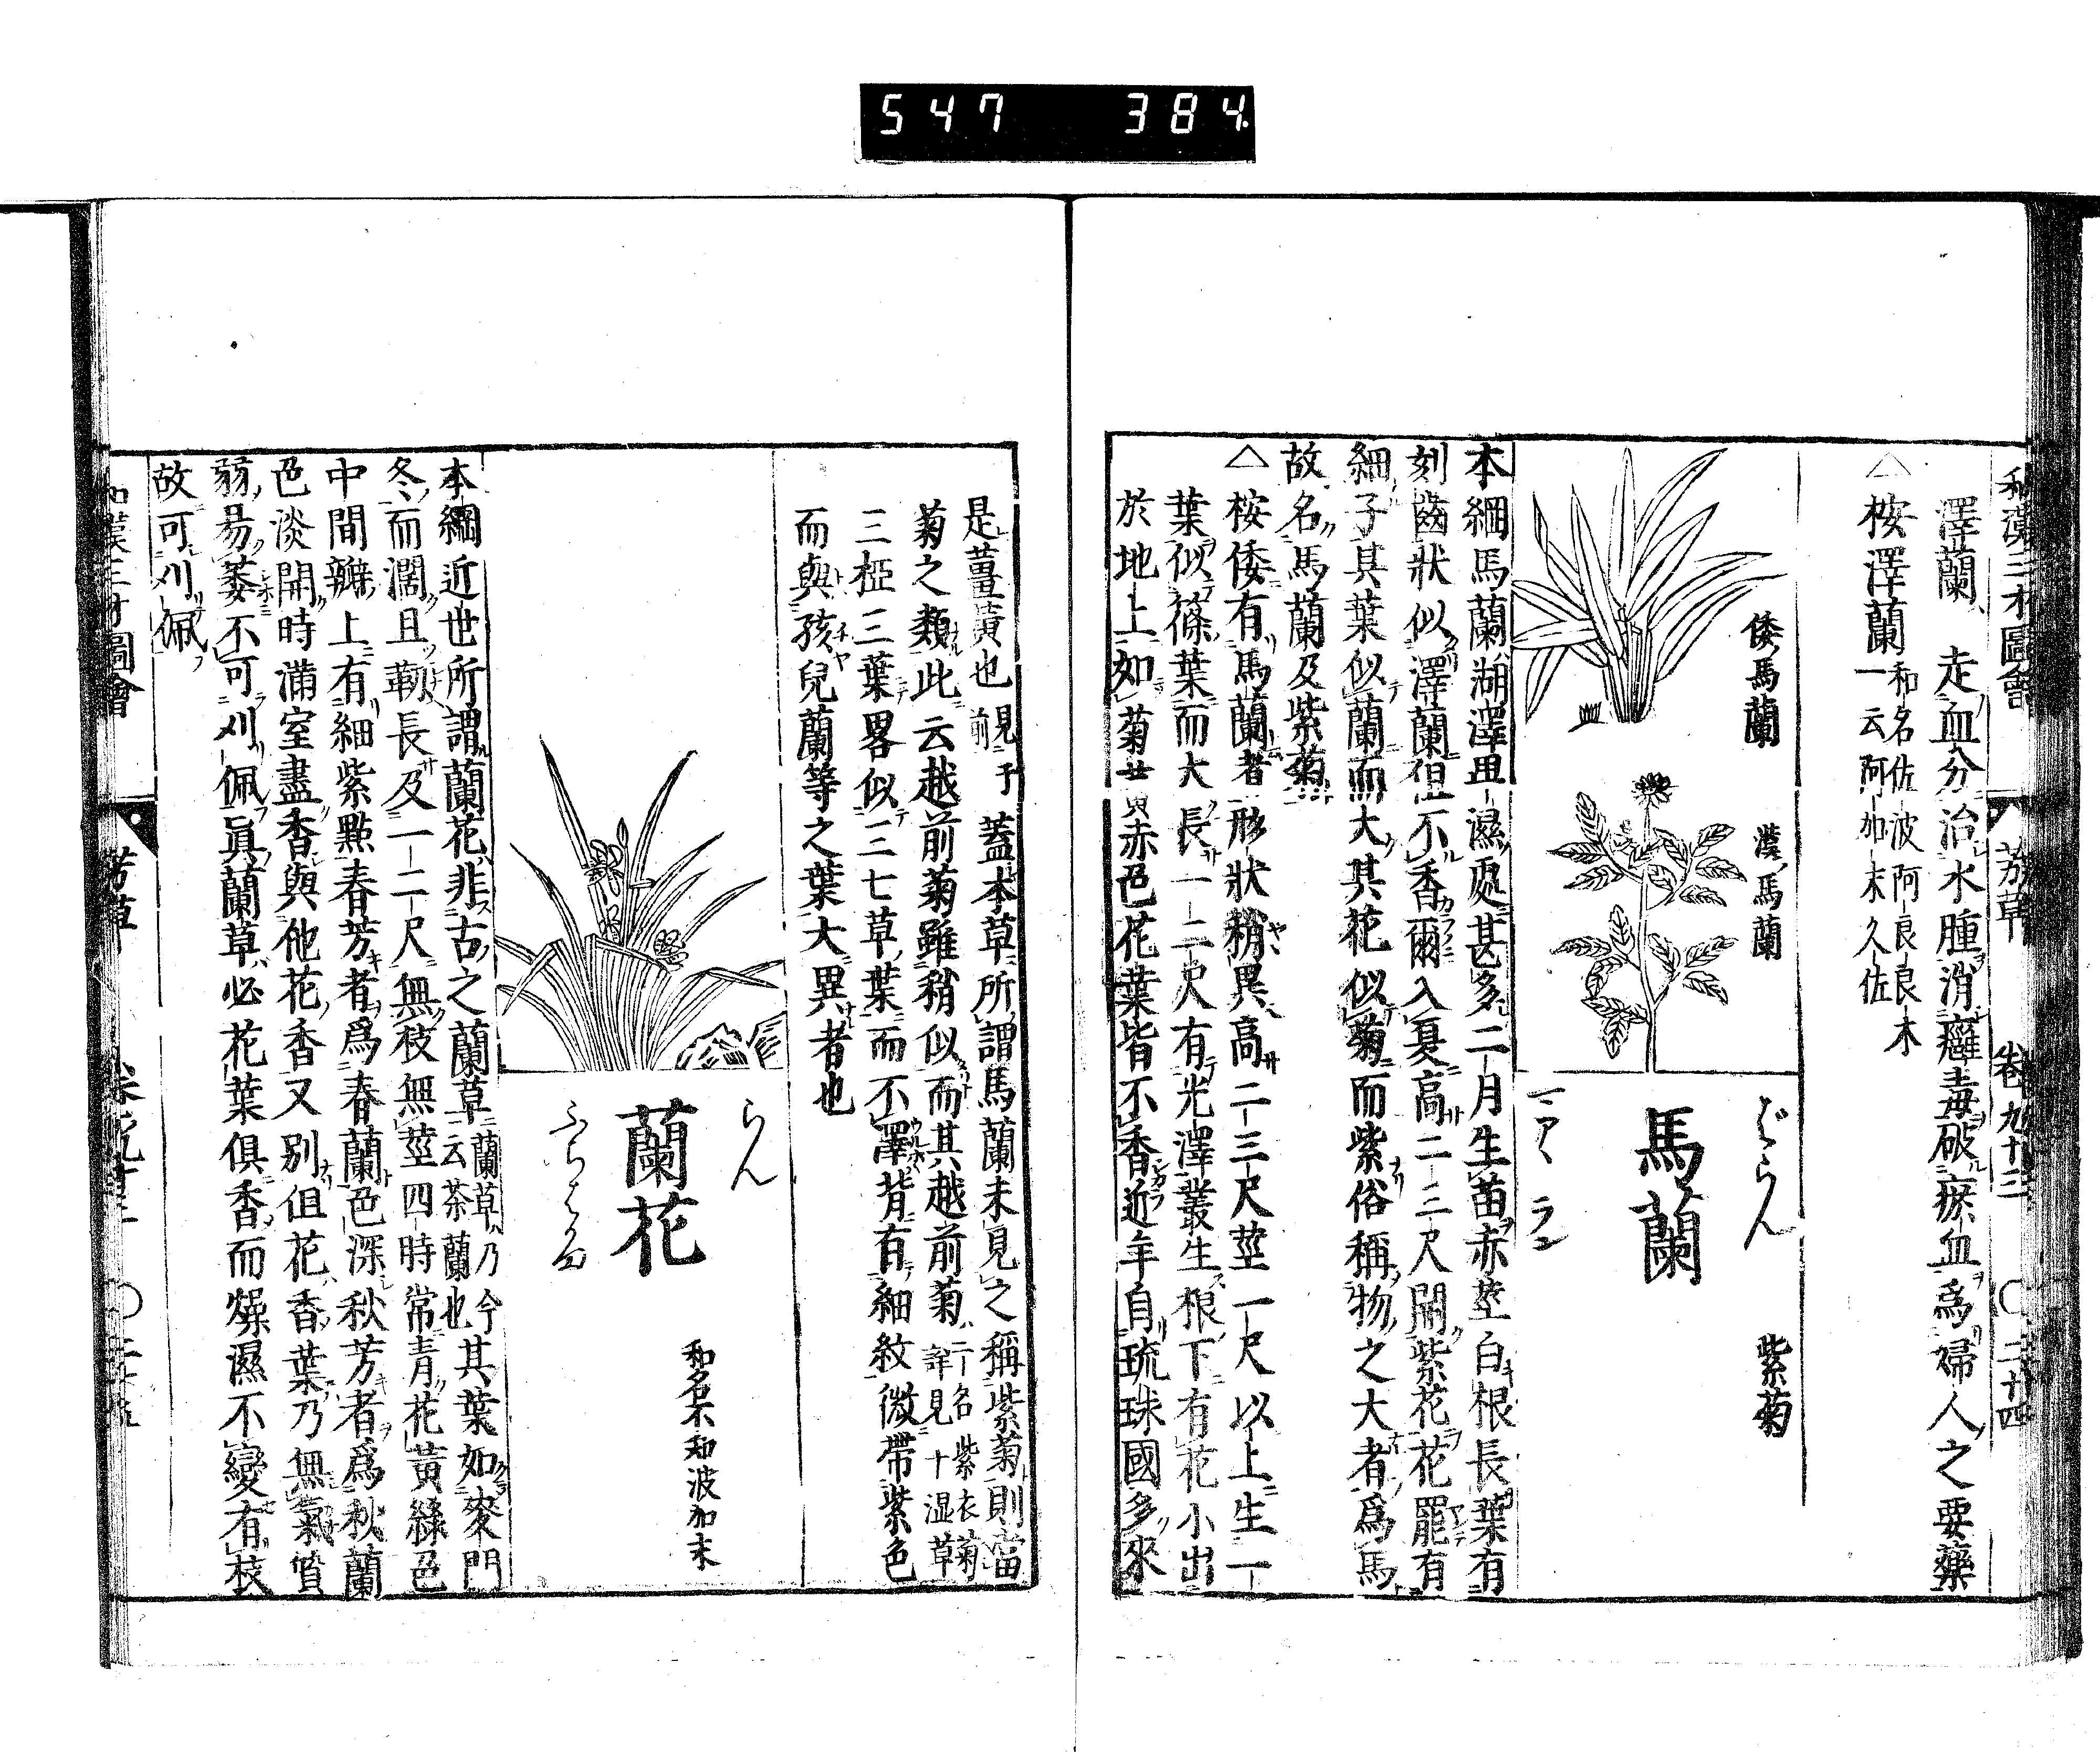 547 384
和漢三才圖會 芳草 卷九十三 〇二十四
澤蘭 走血分治水腫消癰毒破瘀血爲婦人之要藥
△ 桉澤蘭 和名佐波阿良良木
一云阿加末久佐
倭馬蘭
漢馬蘭
ばらん
馬蘭
マア ラン
紫菊
本綱馬蘭湖澤卑濕處甚多二月生苗赤莖白根長葉有
刻齒狀似澤蘭但不香爾入夏高二三尺開紫花花罷有
細子其葉似蘭而大其花似菊而紫俗稱物之大者爲馬
故名馬蘭及紫菊
△ 桉倭有馬蘭者形狀稍異高二三尺莖一尺以上生一
葉似篠葉而大長一二尺有光澤叢生根下有花小出
於地上如菊 赤色花葉皆不香近年自琉球國多來
是薑黃也 見前 蓋本草所謂馬蘭未見之稱紫菊則當
菊之類此云越前菊雖稍似而其越前菊 一名紫衣菊
詳見于湿草
三椏三葉畧似三七草葉而不澤背有細紋微帶紫色
而與孩兒蘭等之葉大異者也
らん
蘭花
ふぢばかま
和名不知波加末
本綱近世所謂蘭花非古之蘭草 蘭草乃今
云茶蘭也 其葉如麥門
冬而濶且韌長及一二尺無枝無莖四時常青花黃綠色
中間瓣上有細紫點春芳者爲春蘭色深秋芳者爲秋蘭
色淡開時滿室盡香與他花香又別但花香葉乃無氣質
弱易萎不可刈佩眞蘭草必花葉俱香而燥濕不變有枝
故可刈佩
和漢三才圖會 芳草